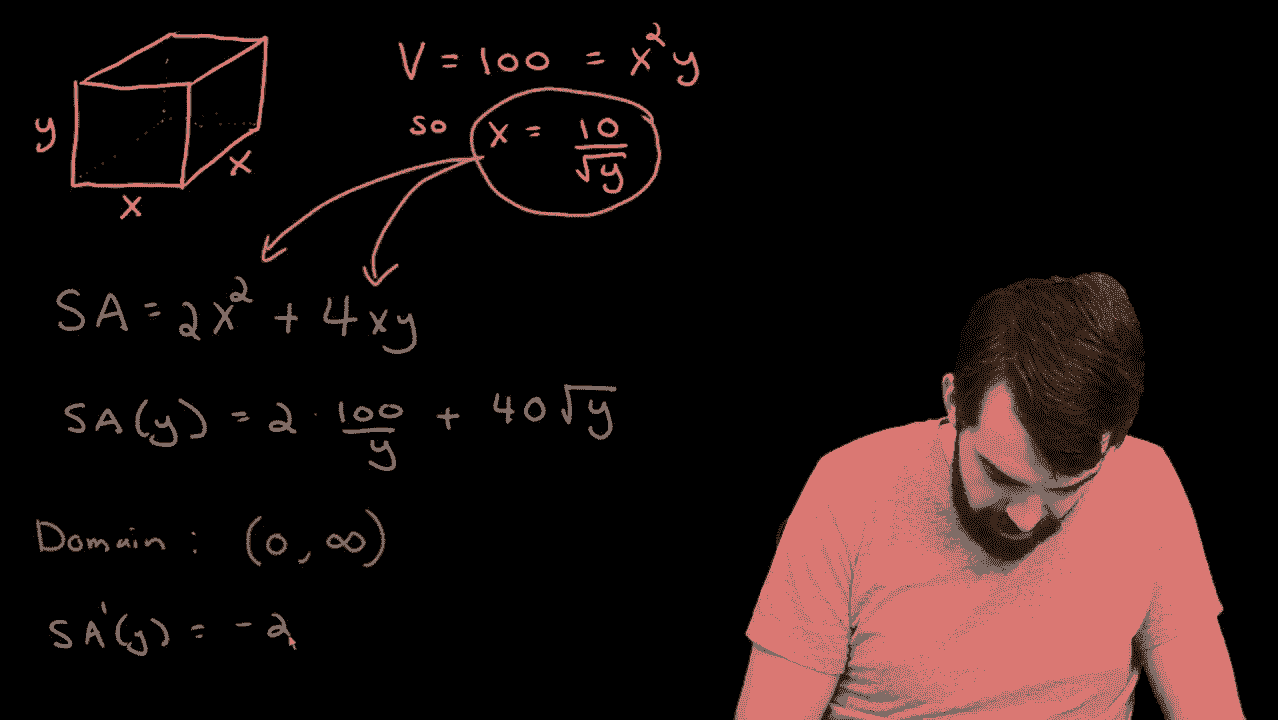 V = 100 = x²y
so x = 10/√y
y
x
x
SA = 2x² + 4xy
SA(y) = 2 · 100/y + 40√y
Domain : (0, ∞)
SA'(y) = -2